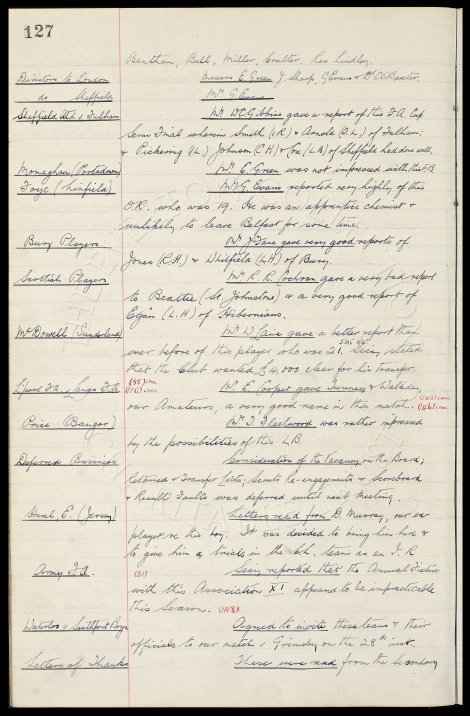 127
Bentham, Bell, Miller, Coulter. Res Lindley,
Directors to London
Messrs E. Green, J. Sharp, G Evans & Dr C S Baxter.
do Sheffield
Mr G Evans
Sheffield Utd v Fulham
Mr W C Gibbins gave a report of this F.A. Cup
Semi Final wherein Smith (I.R.) & Arnold (O.L.) of Fulham;
& Pickering (I.L.) Johnson (C.H.) & Cox (L.B.) of Sheffield had done well.
Monaghan (Portadown)
Mr E. Green was not impressed with this F.B.
Foye (Linfield)
Mr G. Evans reported very highly of this
O.R. who was 19. He was an apprentice chemist &
unlikely to leave Belfast for some time.
Bury Players
Mr J Fare gave very good reports of
Jones (R.H.) & Whitfield (L.H.) of Bury.
Scottish Players
Mr R. R. Cochran gave a very bad report
to Beattie (St Johnstone) & a very good report of
Egan (L.H) of Hibernians.
McDowell (Sunderland)
Mr W Cane gave a better report than
ever before of this player who was 21. 5'10" Secy stated
that the Club wanted £4,000 clear for his transfer.
Mr E. Cooper gave Tunney & Walkden,
our Amateurs, a very good name in this match.
Price (Bangor)
Mr T. Fleetwood was rather impressed
by the possibilities of this L.B.
Deferred Business
Consideration of the Vacancy on the Board;
Retained & Transfer Lists; Scouts Re-engagements & Scoreboard
& Result Faults was deferred until next Meeting.
Hurel E. (Jersey)
Letters read from D. Murray, our ex
player re this boy. It was decided to bring him here &
to give him 2 trials in the team as an I.R
Army F.A.
(31)
Secy reported that the Annual Fixture
with this Association XI appeared to be impracticable
this Season.
Waterloo v Southport Boys
Agreed to invite these teams & their
officials to our match v Grimsby on the 28th inst.
Letters of Thanks
These were read from the Secondary